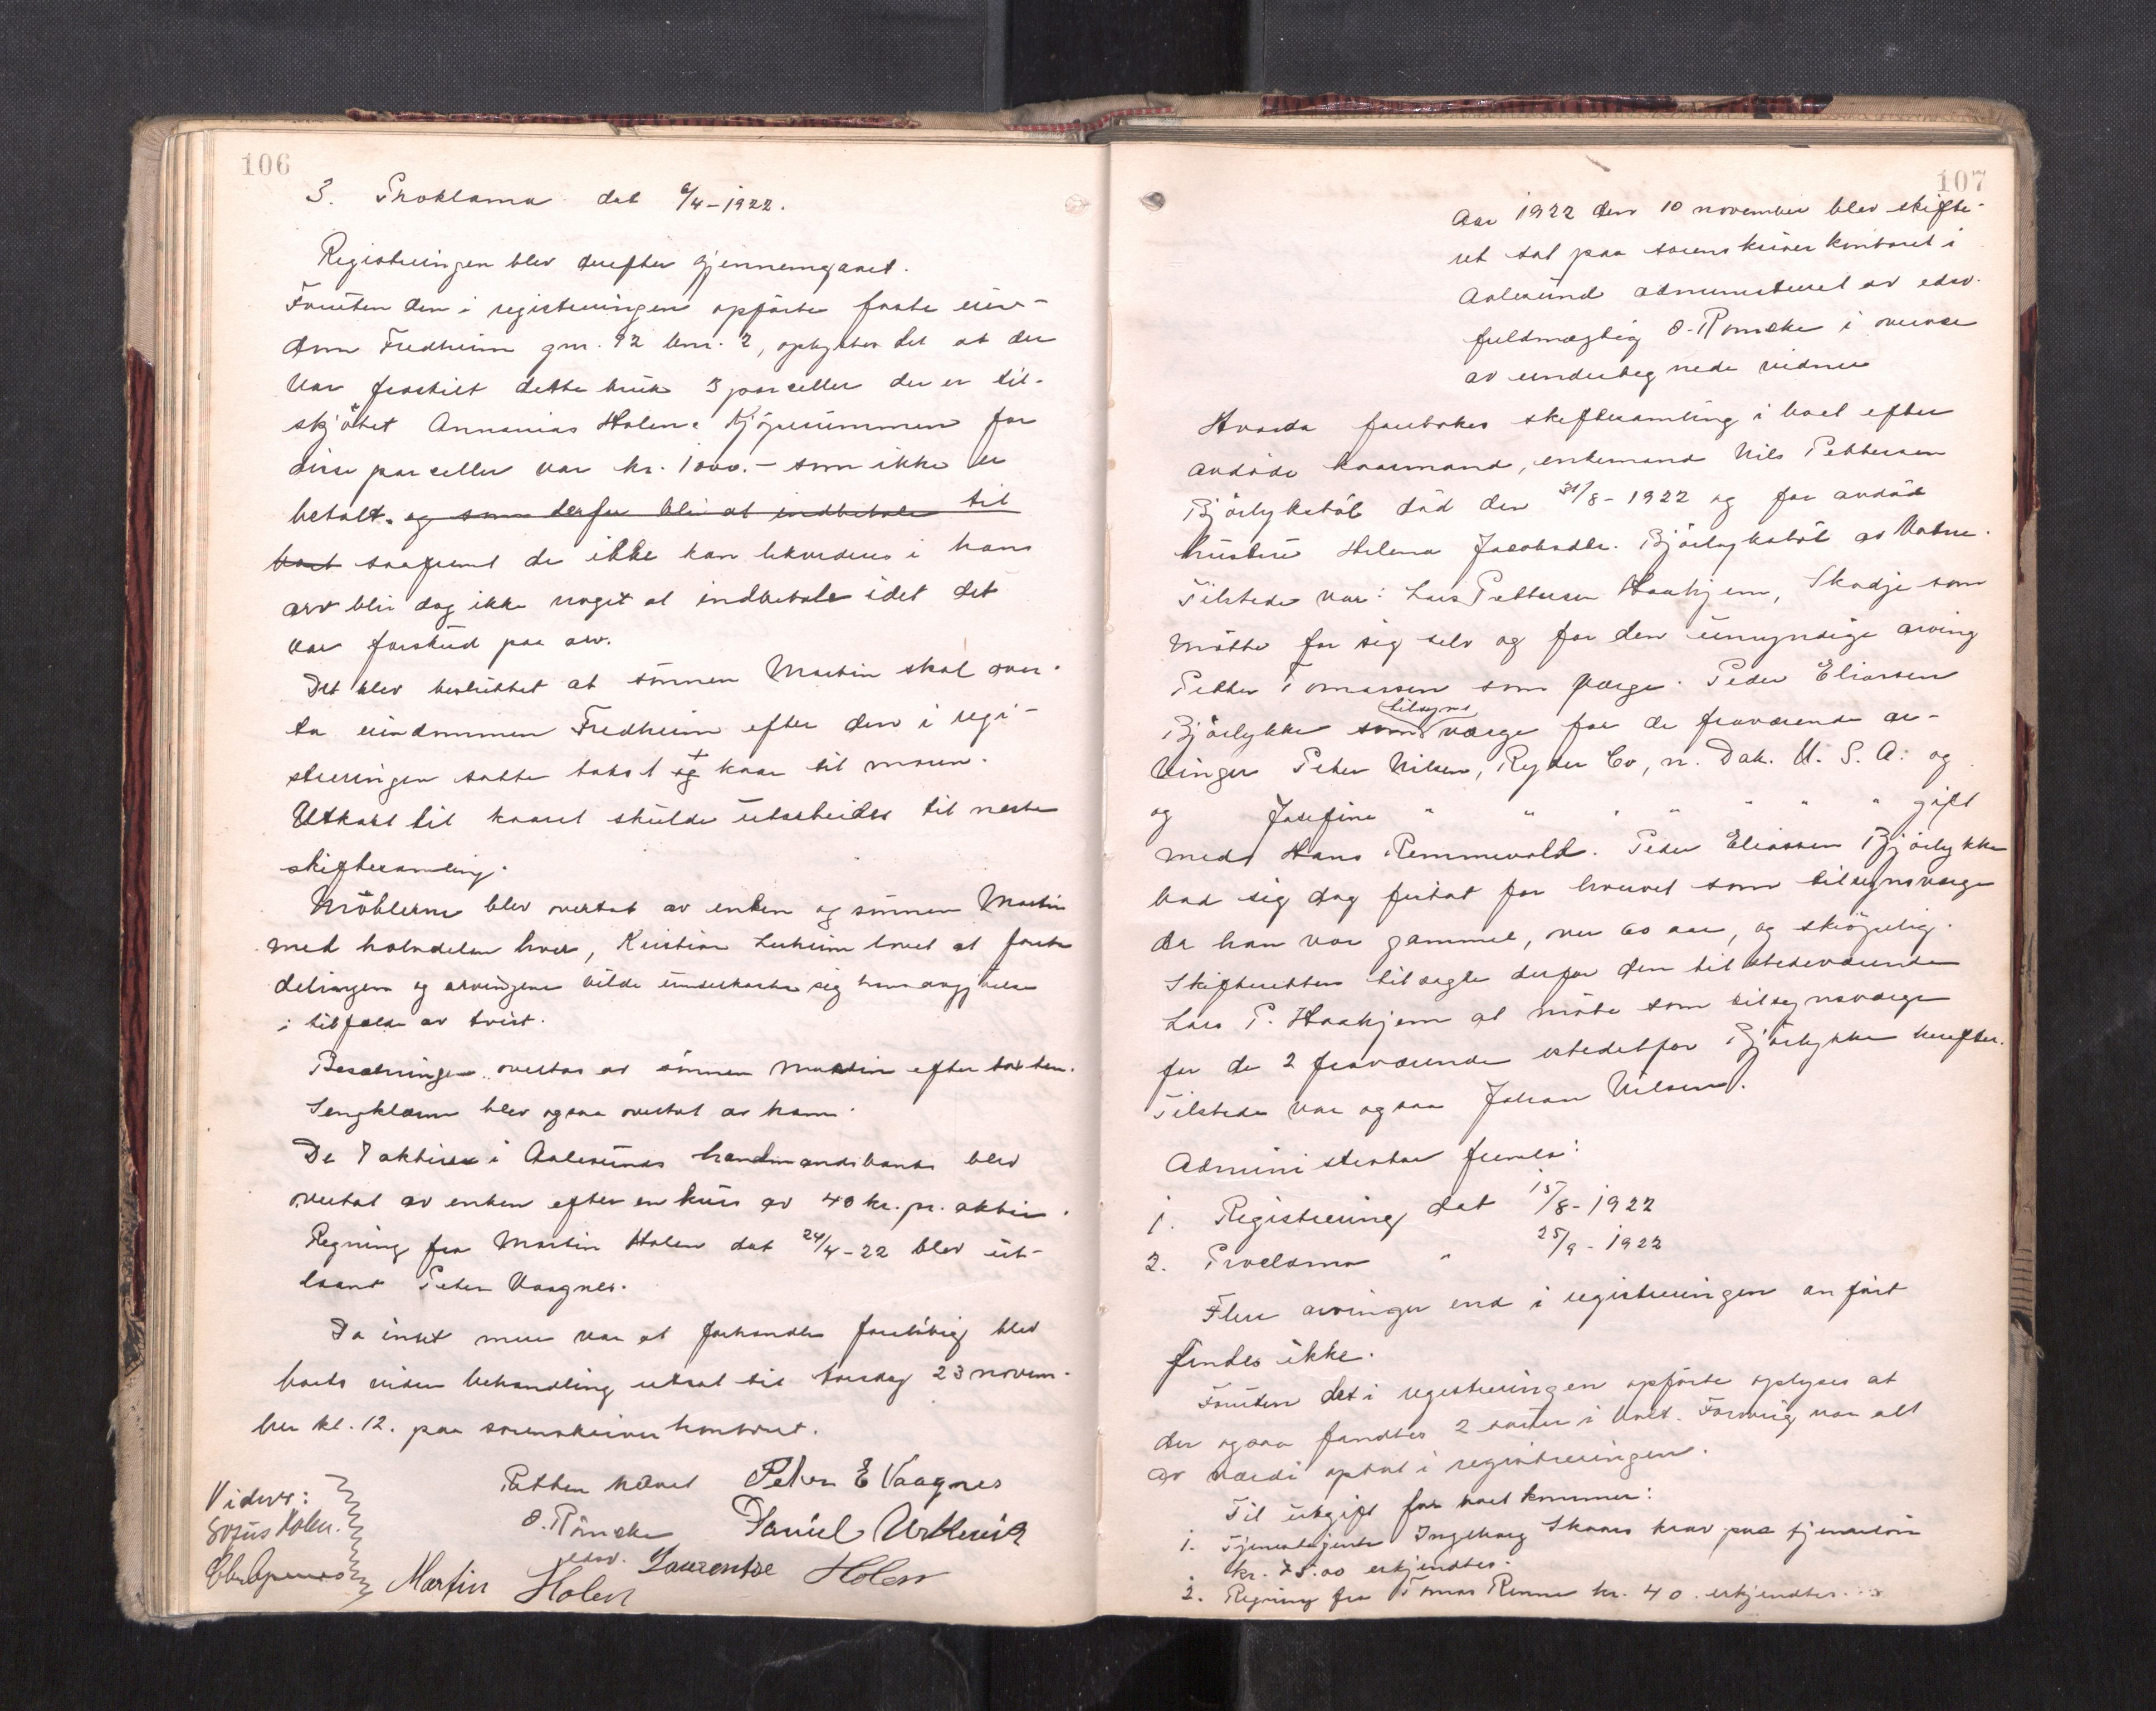 106
3. Proklama dat 6/4-1922.
Registreringen blev derefter gjennemgaaet.
Foruten den i registreringen opførte faste eien-
dom Fredheim gnr. 92 bnr. 2, oplystes det at der
var fraskilt dette bruk 3 parceller der er til-
skjøtet Annanias Holen. Kjøpesummen for
disse parceller var kr. 1000.- som ikke er
betalt. og som derfor blir at indbetale til
boet saafremt de ikke kan likvideres i hans
arv blir dog ikke noget at indbetale idet det
var forskud paa arv.
Det blev besluttet at sønnen Martin skal over-
ta eiendommen Fredheim efter den i regi-
streringen satte takst og + kaar til moren.
Utkast til kaaret skulde utarbeides til neste
skiftesamling.
Møblerne blev overtat av enken og sønnen Martin
med halvdelen hver, Kristian lovet at foreta
delingen og arvingene vilde underkaste sig hans avgjørelse
i tilfælde av tvist.
Besætningen overtas av sønnen Martin efter taksten.
Sengklærne blev ogsaa overtat av ham.
De 7 aktier i Aalesunds handmandsbank blev
overtat av enken efter en kurs av 40 kr. pr. aktie.
Regning fra Martin Holen dat 24/4-22 blev ut-
laant Peter Vaagnes.
Da intet mere var at forhandle foreløbig blev
boets videre behandling utsat til torsdag 23 novem-
ber kl. 12. paa sorenskriverkontoret.
Retten hævet Peter E Vaagnes
Vidner:
O. Rømcke Daniel
Sofus Holen.
edsv. Laurentse Holen
Martin Holen
107
Aar 1922 den 10 november blev skifte-
ret sat paa sorenskriverkontoret i
Aalesund administreret av edsv.
fuldmægtig O. Rømcke i overvær
av undertegnede vidner
Hvorda foretokes skiftesamling i boet efter
avdøde kaarmand, enkemand Nils Pettersen
Bjørlykstøl død den 31/8-1922 og før avdød
hustru Helena Jacobsdtr. Bjørlykstøl av Vatne.
Tilstede var: Lars Pettersen Haahjem, Skodje som
møtte for sig selv og for den umyndige arving
Petter Tomassen som værge. Peder Eliassen
Bjørlykke som tilsyns værge for de fraværende ar-
vinger Peter Nilsen, Ryder Co, n. Dak. U. S. A. og
og Josefine " " " " " " " gift
med Hans Remmevold. Peder Eliassen Bjørlykke
bad sig dog fritat for hvervet som tilsynsværge
da han var gammel, over 60 aar, og skrøpelig.
Skifteretten tilsagde derfor den tilstedeværende
Lars P. Haahjem at møte som tilsynsværge
for de 2 fraværende istedetfor Bjørlykke herefter.
Tilstede var ogsaa Johan Nilsen.
Administrator fremla:
1. Registrering dat 15/8-1922
2. Proclama " 25/9-1922
Flere arvinger end i registreringen anført
findes ikke.
Foruten det i registreringen opførte oplyses at
der ogsaa fandtes 2 i boet. Forøvrig var alt
av værdi optat i registreringen.
Til utgift for boet kommer:
1. Tjenestejente Ingeborg Skaars krav paa tjenestløn
kr. 75.00 erkjendtes.
2. Regning fra Tomas Renne kr. 40. erkjendtes.